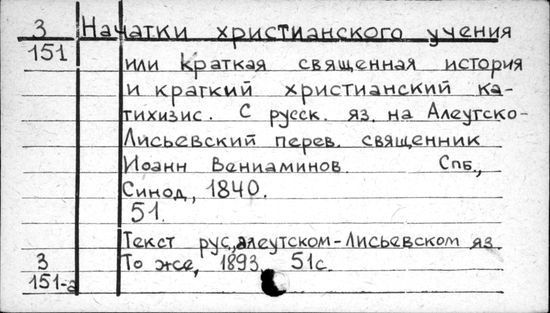 3 Начатки христианского учения
151 или краткая священная история
и краткий христианский ка-
тихизис. С русск. яз. на Алеутско-
Лисьевский перев. священник
Иоанн Вениаминов. Спб.,
Синод, 1840.
51.
Текст рус., алеутском-Лисьевском яз.
3 То же, 1893. 51с.
151-а